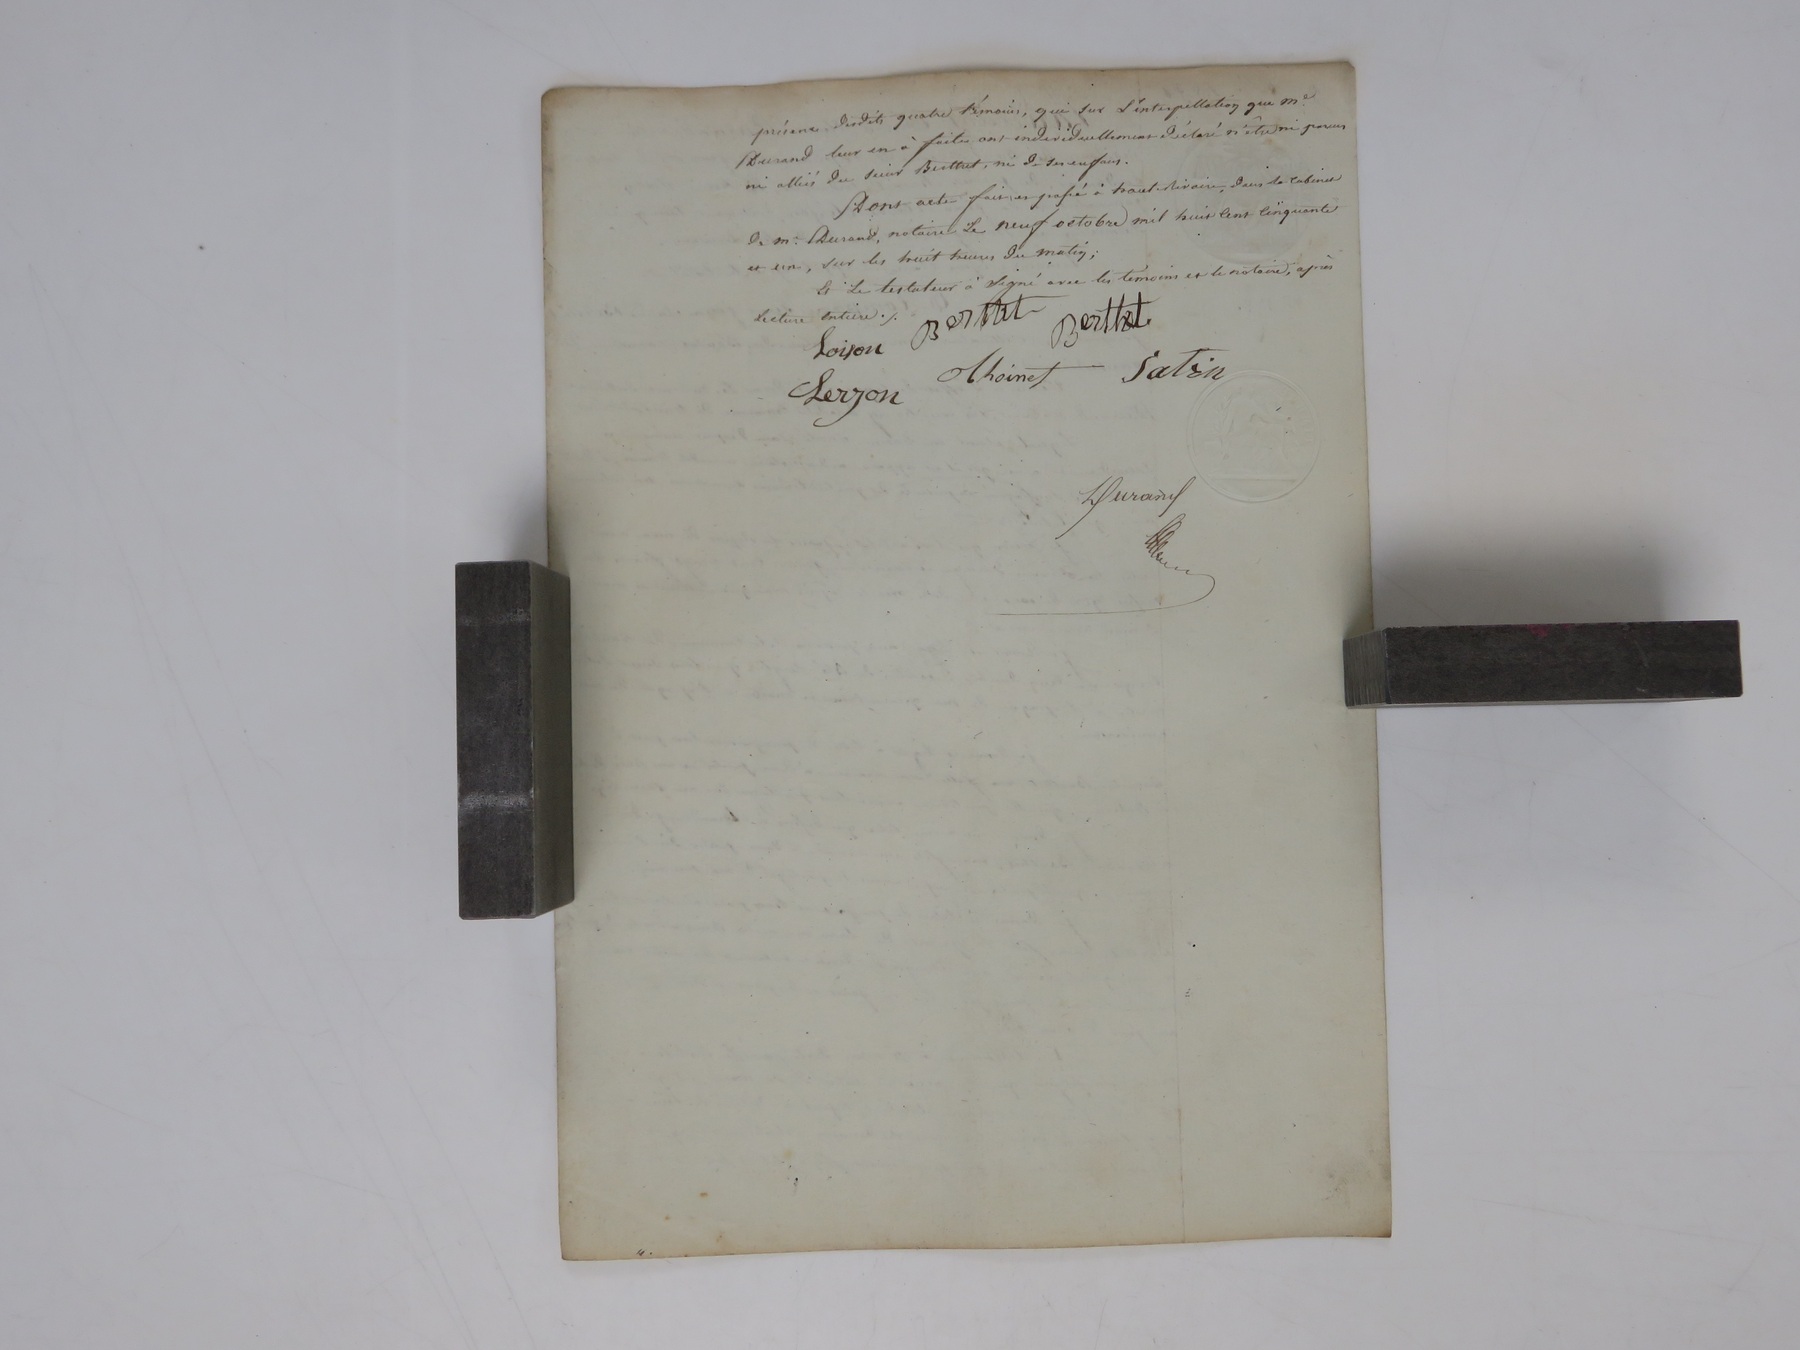 présence desdits quatre témoins, qui sur l'interpellation que me
Durand leur en à faite ont individuellement déclaré n'être ni parens
ni alliés du sieur Berthet, ni de ses enfans.
Dont acte fait et passé à haut-Rivoire, dans le Cabinet
de me Durand, notaire Le neuf octobre mil huit Cent Cinquante
et un, sur les huit heures du matin;
Et Le testateur à Signé avec les témoins et le notaire, après
Lecture entière ./.
Loison Berthet Berthet
Clerjon Thoinet Satin
Durand